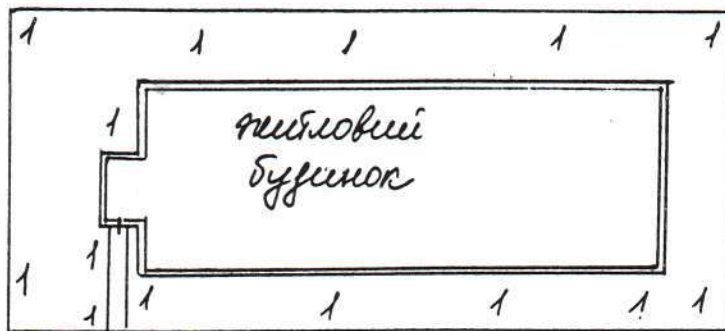 1 1 1 1 1
1
житловий
будинок
1
1
1 1 1 1 1 1